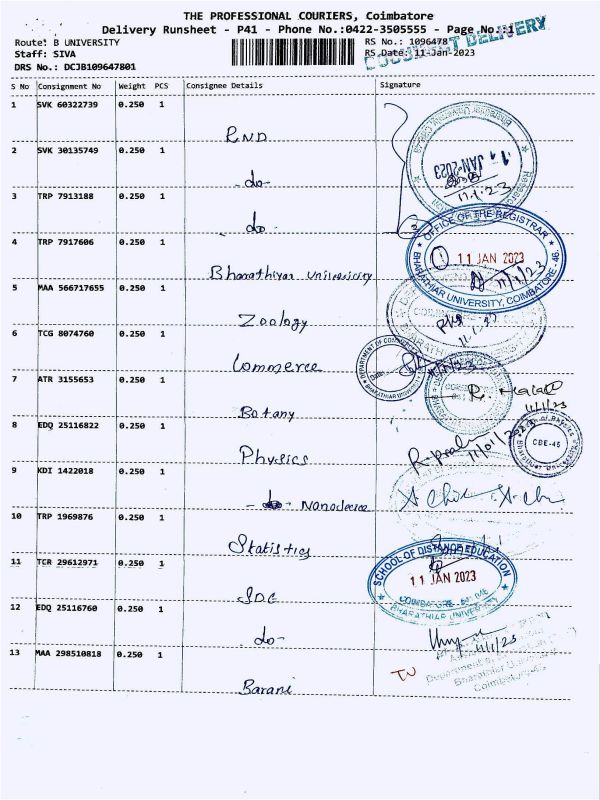 THE PROFESSIONAL COURIERS, Coimbatore
Delivery Runsheet - P41 - Phone No.:0422-3505555 - Page No.:1
Route: B UNIVERSITY
RS No.: 1096478
Staff: SIVA
RS Date: 11-Jan-2023
DELIVERY
DRS No.: DCJB109647801
S No Consignment No Weight PCS Consignee Details Signature
1 SVK 60322739 0.250 1
RND
2 SVK 30135749 0.250 1
-do-
3 TRP 7913188 0.250 1
do
4 TRP 7917606 0.250 1
Bharathiyar University
5 MAA 566717655 0.250 1
Zoology
6 TCG 8074760 0.250 1
Commerce
7 ATR 3155653 0.250 1
Botany
8 EDQ 25116822 0.250 1
Physics
9 KDI 1422018 0.250 1
10 TRP 1969876 0.250 1
Statistics
11 TCR 29612971 0.250 1
SDE
12 EDQ 25116760 0.250 1
do-
13 MAA 298510818 0.250 1
Barani
JAN 2023
11.1.23
OFFICE OF THE REGISTRAR
11 JAN 2023
11/1/23
BHARATHIAR UNIVERSITY, COIMBATORE 46.
DEPARTMENT OF COMMERCE
11/1/23
CDE-46
SCHOOL OF DISTANCE EDUCATION
11 JAN 2023
BHARATHIAR UNIVERSITY
11/1/23
Bharathiar University
Coimbatore-46